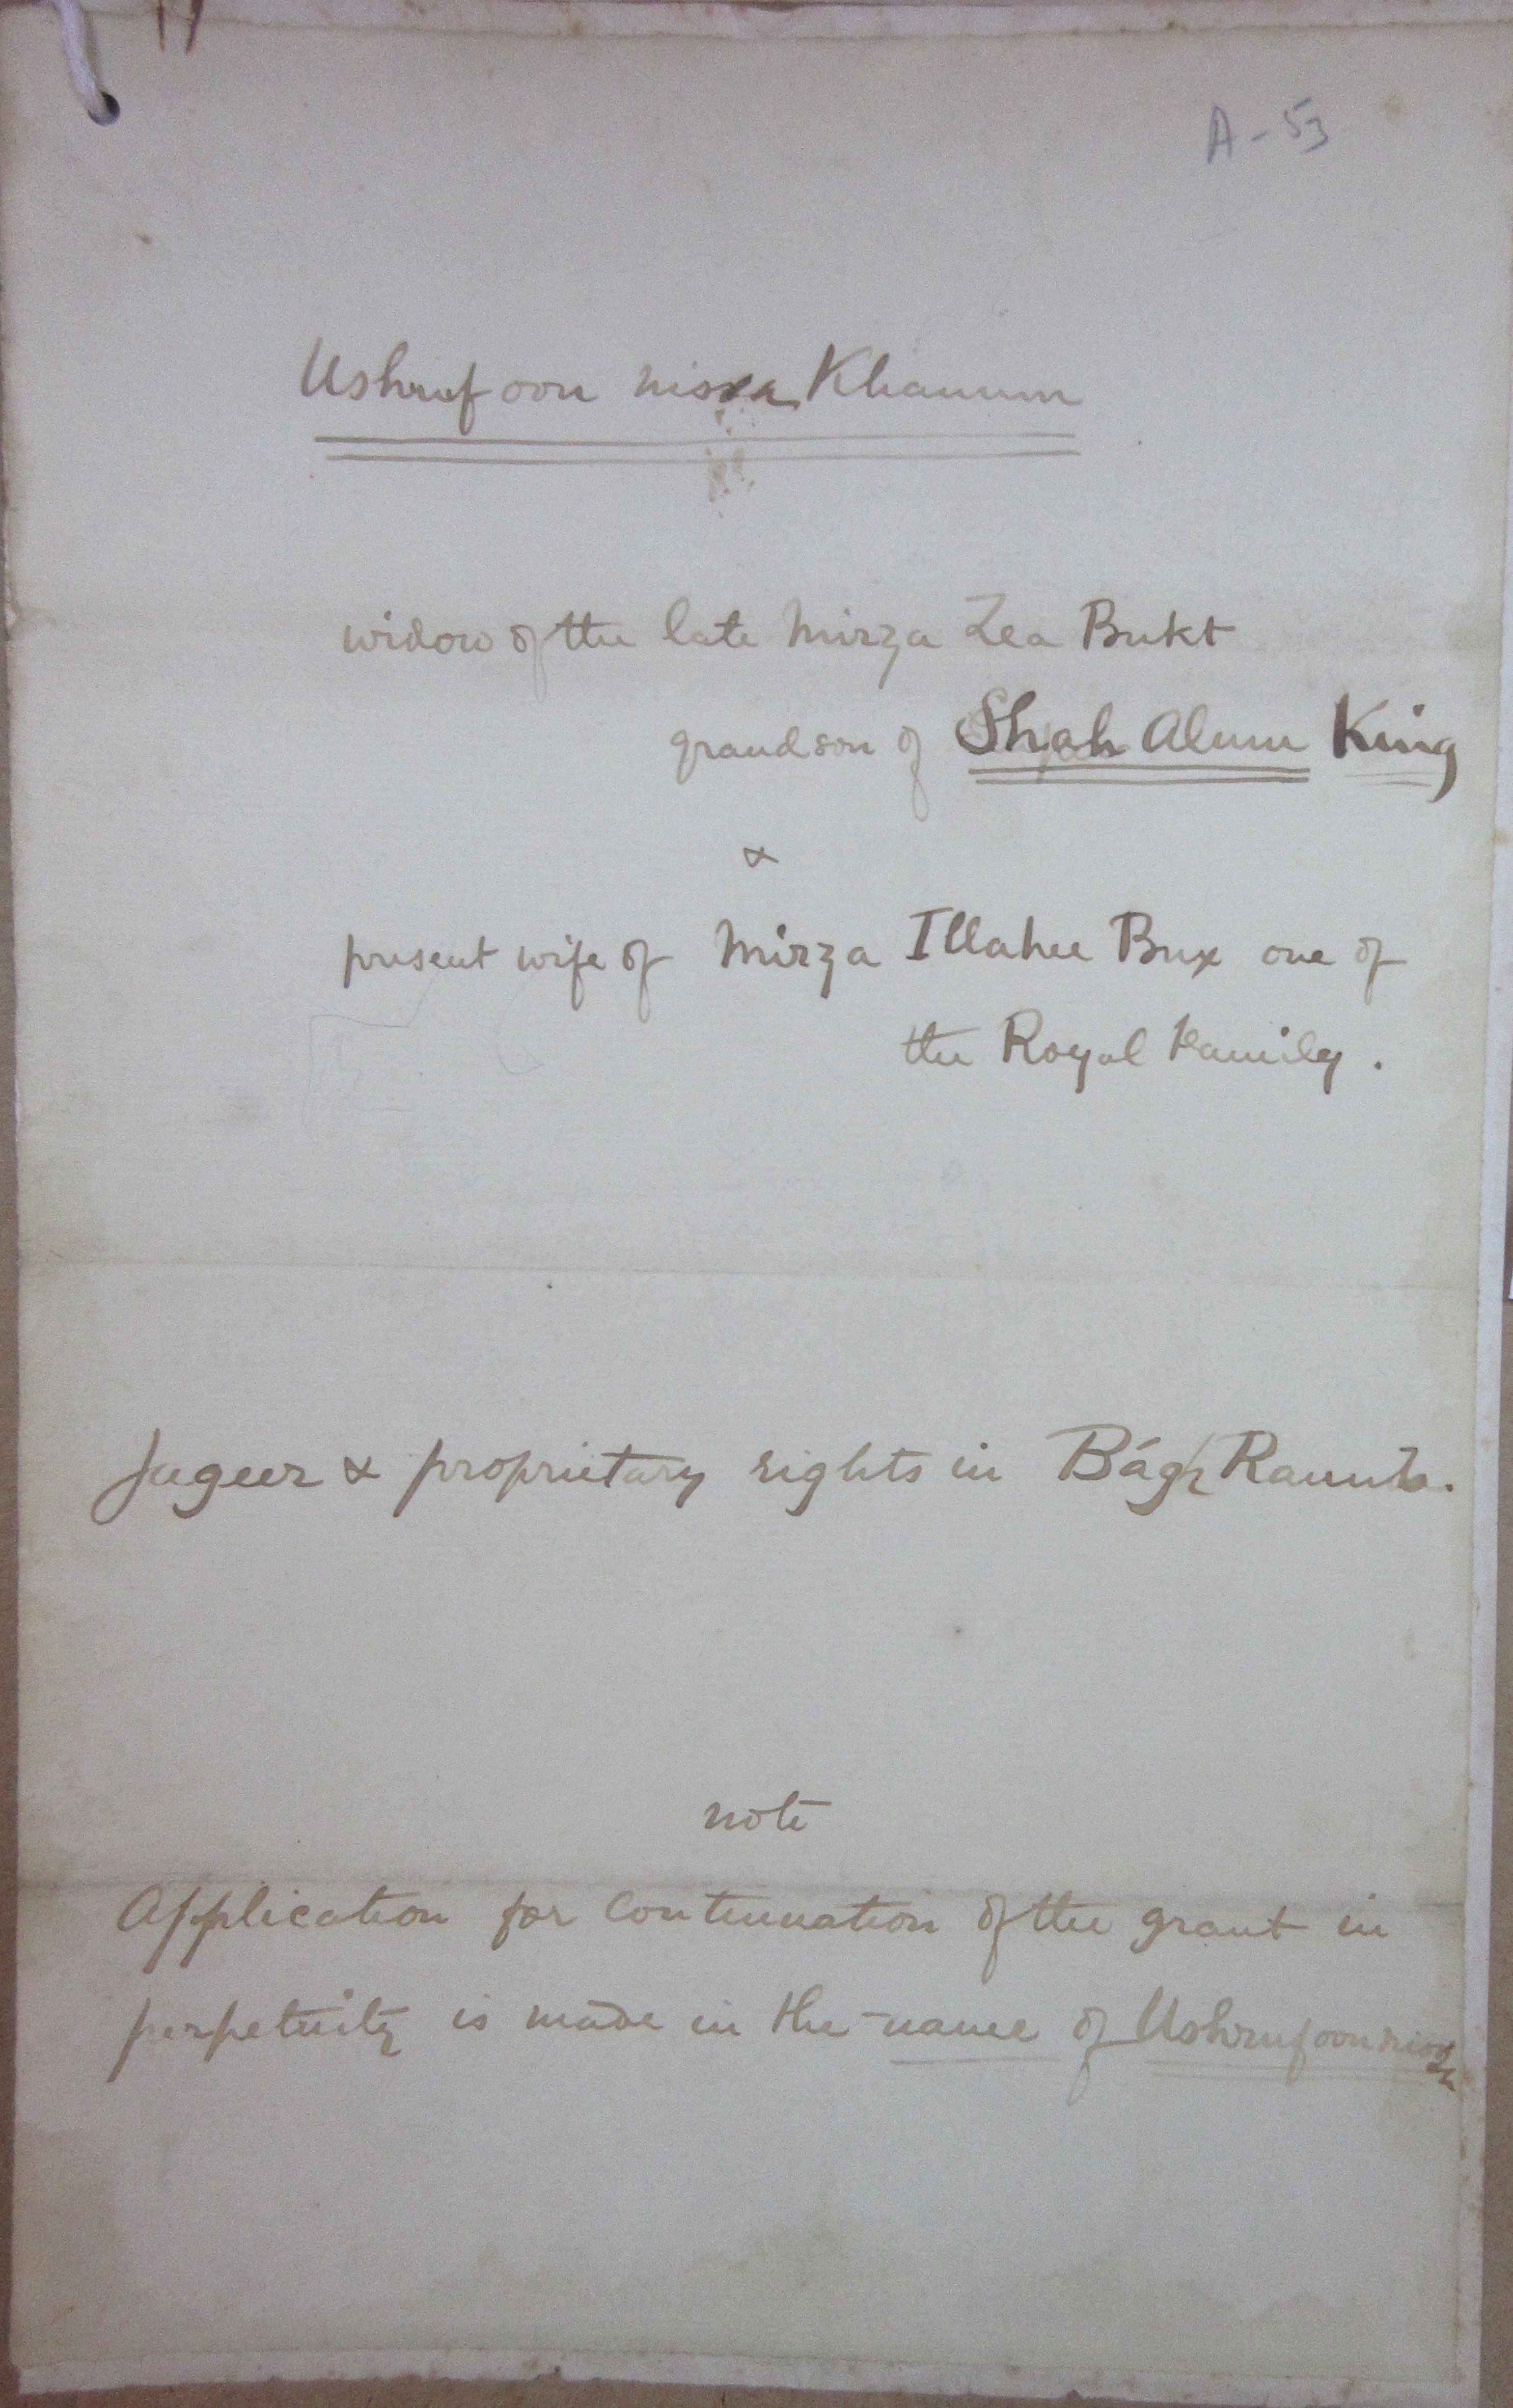 A-53
Ushruf oon nissa Khanum
widow of the late Mirza Zea Bukt
grandson of Shah Alum King
&
present wife of Mirza Illahee Bux one of
the Royal Family.
Jageer & proprietary rights in Bágh
note
Application for continuation of the grant in
perpetuity is made in the name of Ushrufoon nissa